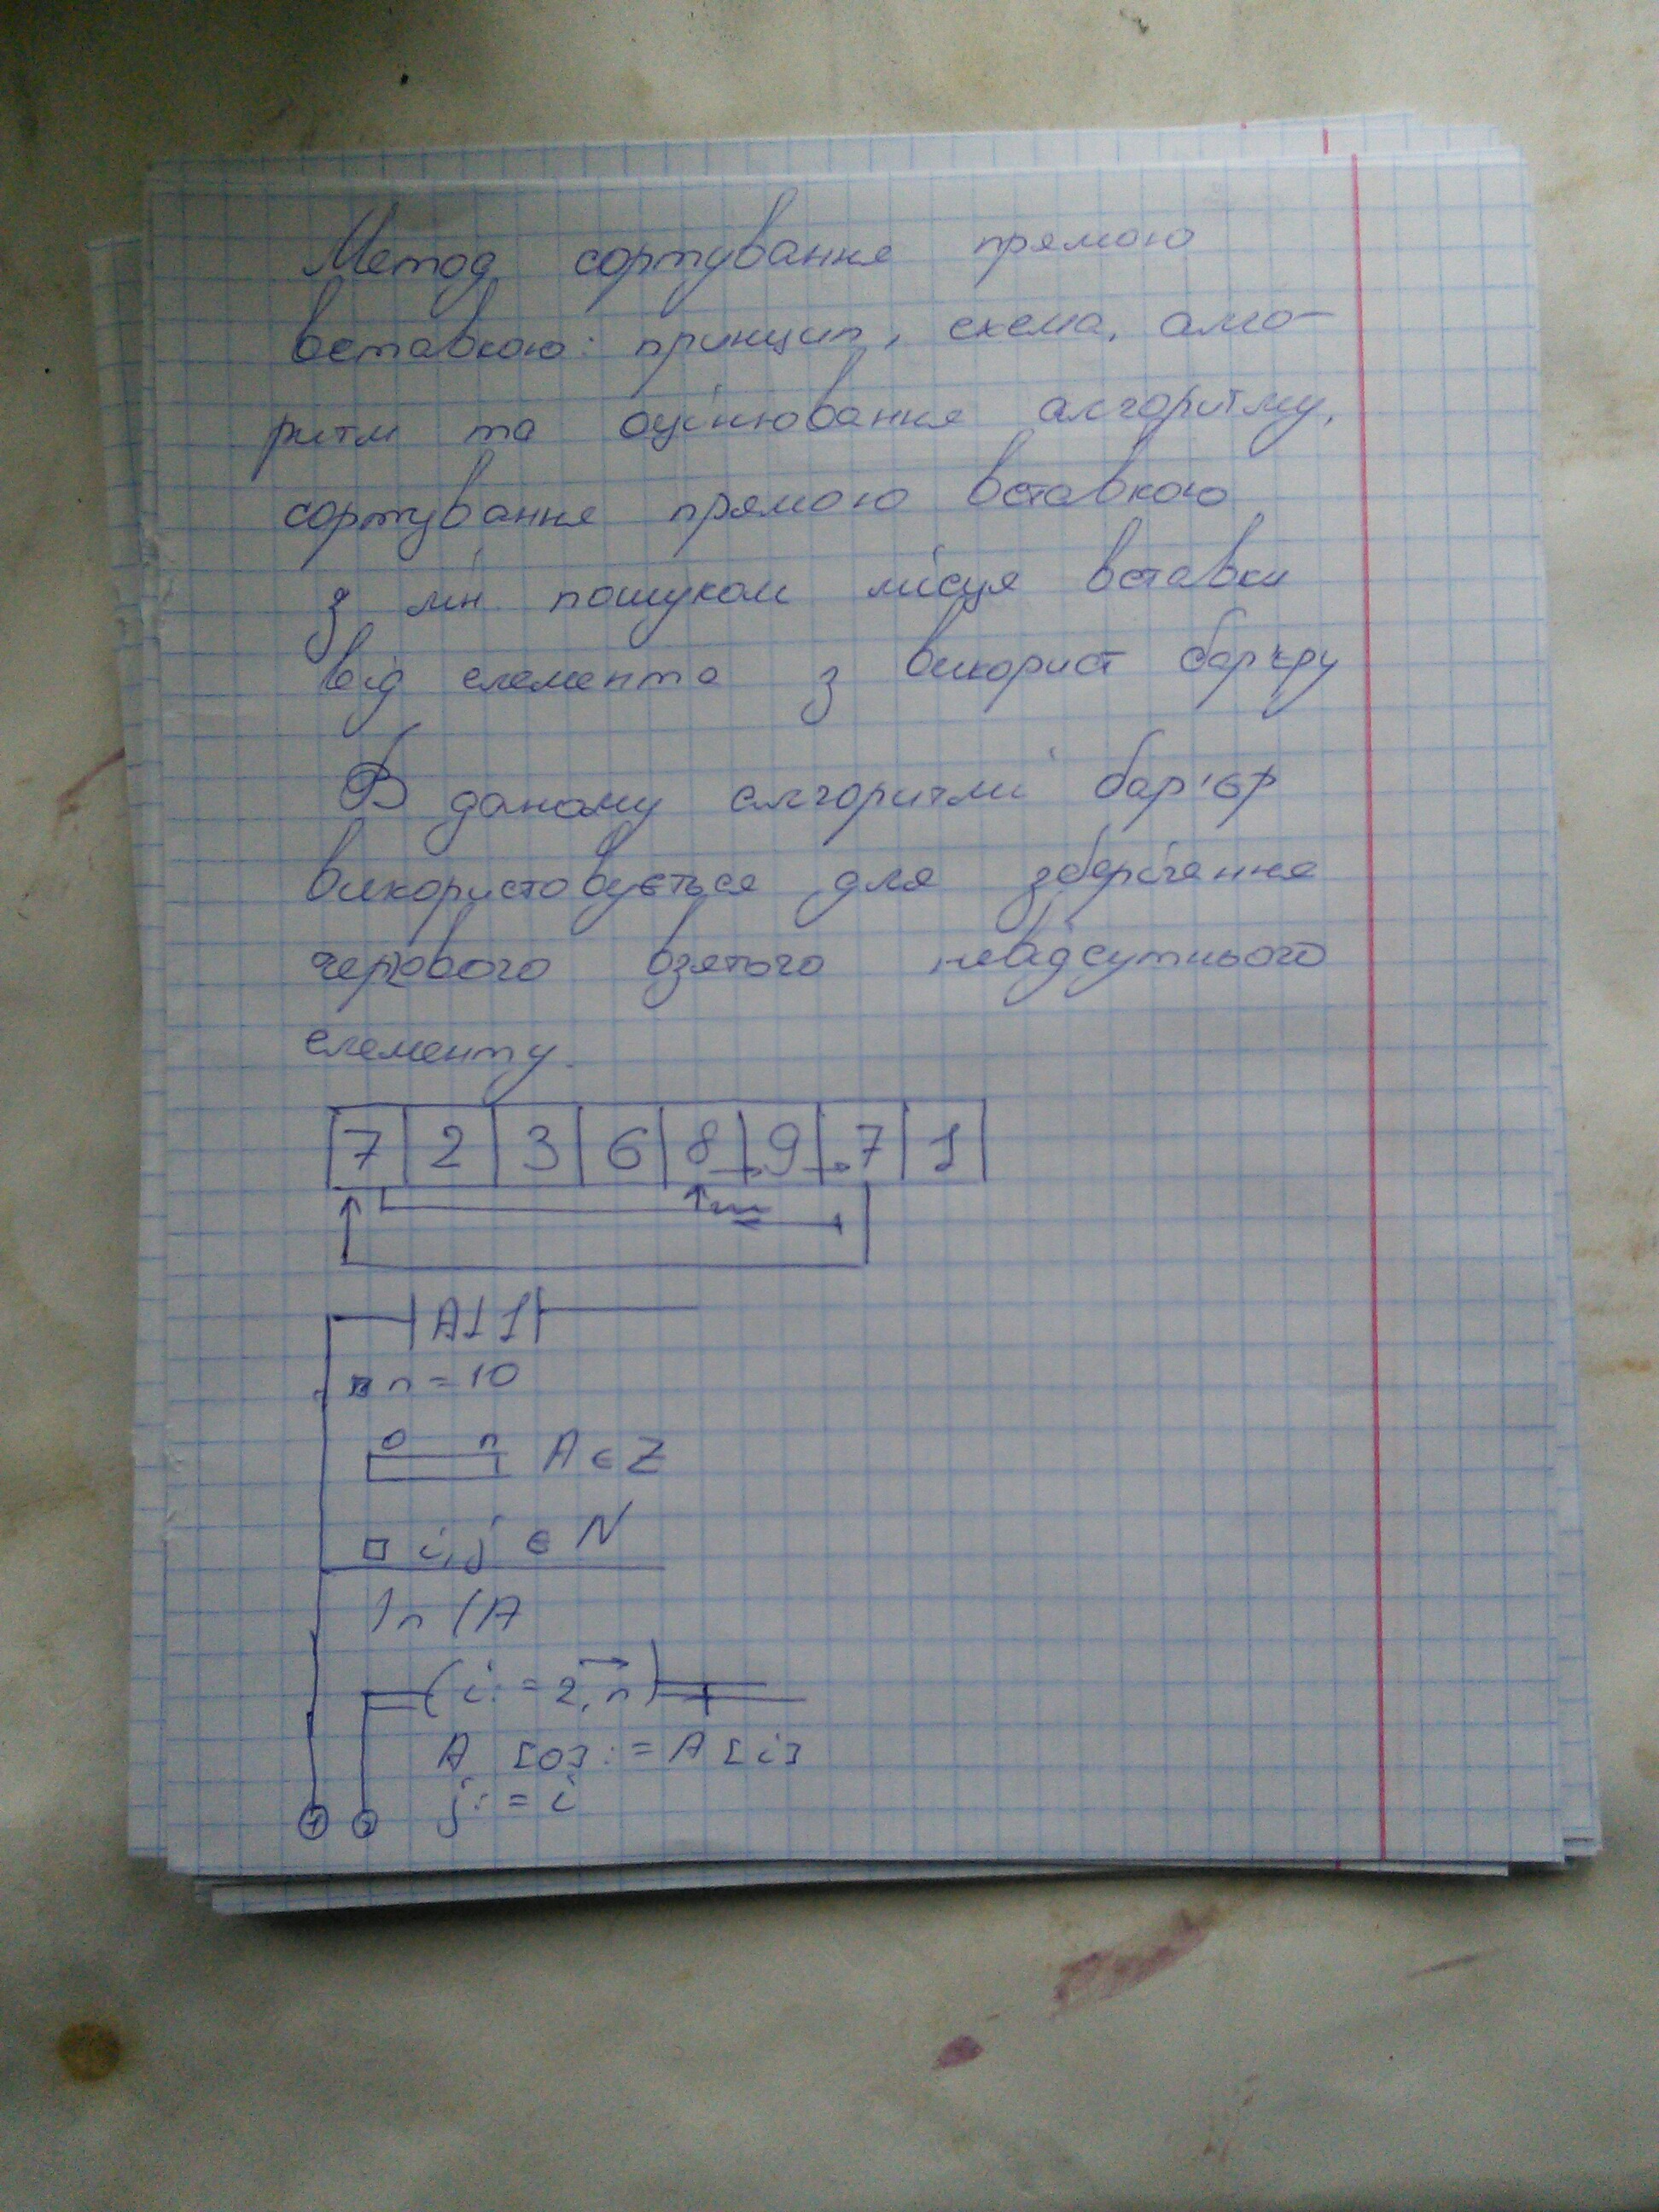 Метод сортування прямою
вставкою: принцип, схема, алго-
ритм та оцінювання алгоритму,
сортування прямою вставкою
з лін. пошуком місця вставки
від елемента з використ бар'єру
В даному алгоритмі бар'єр
використовується для зберігання
чергового взятого невідсутнього
елементу.
7 2 3 6 8 9 7 1
n = 10
0 n A ∈ Z
i, j ∈ N
In (A
(i := 2, n)
A [0] := A [i]
j := i
1 2